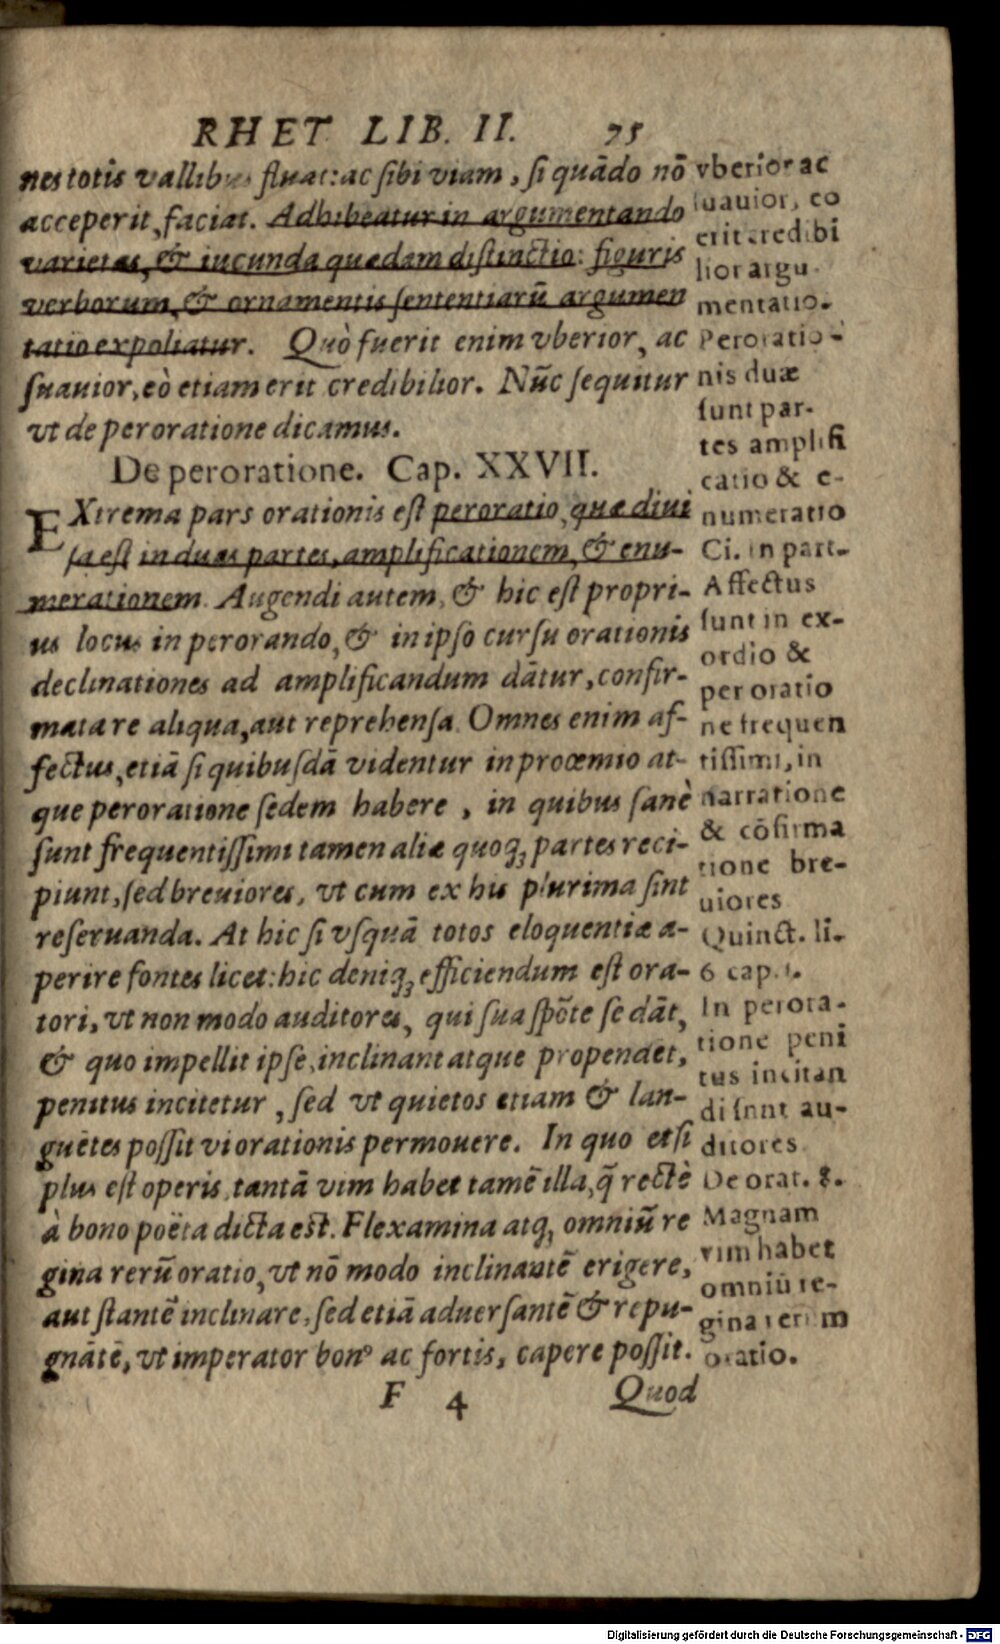 RHET LIB. II. 75
nes totis vallibus fluat: ac sibi viam, si quãdo nõ
acceperit, faciat. Adhibeatur in argumentando
varietas, & iucunda quædam distinctio: figuris
verborum, & ornamentis sententiarũ argumen
tatio expoliatur. Quò fuerit enim vberior, ac
suauior, eò etiam erit credibilior. Nũc sequitur
vt de peroratione dicamus.
De peroratione. Cap. XXVII.
EXtrema pars orationis est peroratio, quæ diui
sa est in duas partes, amplificationem, & enu-
merationem. Augendi autem, & hic est propri-
us locus in perorando, & in ipso cursu orationis
declinationes ad amplificandum dãtur, confir-
mata re aliqua, aut reprehensa. Omnes enim af-
fectus, etiã si quibusdã videntur in proœmio at-
que peroratione sedem habere, in quibus sanè
sunt frequentissimi tamen aliæ quoq; partes reci-
piunt, sed breuiores, vt cum ex his plurima sint
reseruanda. At hic si vsquã totos eloquentiæ a-
perire fontes licet: hic deniq; efficiendum est ora-
tori, vt non modo auditores, qui sua spõte se dãt,
& quo impellit ipse, inclinant atque propendet,
penitus incitetur, sed vt quietos etiam & lan-
guẽtes possit vi orationis permouere. In quo etsi
plus est operis, tantã vim habet tamẽ illa, q̃ rectè
à bono poëta dicta est. Flexamina atq; omniũ re
gina rerũ oratio, vt nõ modo inclinantẽ erigere,
aut stantẽ inclinare, sed etiã aduersantẽ & repu-
gnãtẽ, vt imperator bonꝰ ac fortis, capere possit.
F 4 Quod
vberior ac
suauior, eo
erit credibi
lior argu
mentatio.
Peroratio-
nis duæ
sunt par-
tes amplifi
catio & e-
numeratio
Ci. in part.
Affectus
sunt in ex-
ordio &
peroratio
ne frequen
tissimi, in
narratione
& cõfirma
tione bre-
uiores
Quinct. li.
6 cap. 1.
In perora-
tione peni
tus incitan
di snnt au-
ditores
De orat. 2.
Magnam
vim habet
omniũ re-
gina rerum
oratio.
Digitalisierung gefördert durch die Deutsche Forschungsgemeinschaft - DFG